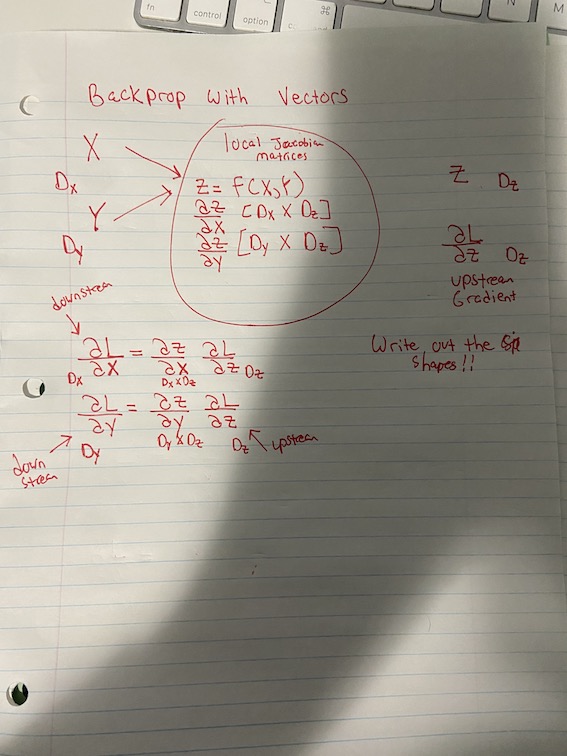 fn
control
option
⌘
N
M
Backprop with Vectors
X
Dx
Y
Dy
local Jacobian
matrices
Z = F(X,Y)
∂z/∂x [Dx X Dz]
∂z/∂y [Dy X Dz]
Z Dz
∂L/∂z Dz
upstream
Gradient
downstream
∂L/∂X = ∂z/∂x ∂L/∂z Dz
Dx DxxDz
∂L/∂Y = ∂z/∂y ∂L/∂z
Dy Dy X Dz Dz upstream
down
stream
Write out the
Shapes!!